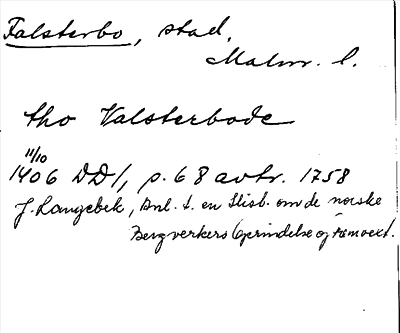 Falsterbo, stad,
Malm. l.
tho Valsterbode
11/10
1406 DD1, p. 68 avtr. 1758
J. Langebek, Anl. t. en Hist. om de norske
Bergverkers Oprindelse og Fremvext.